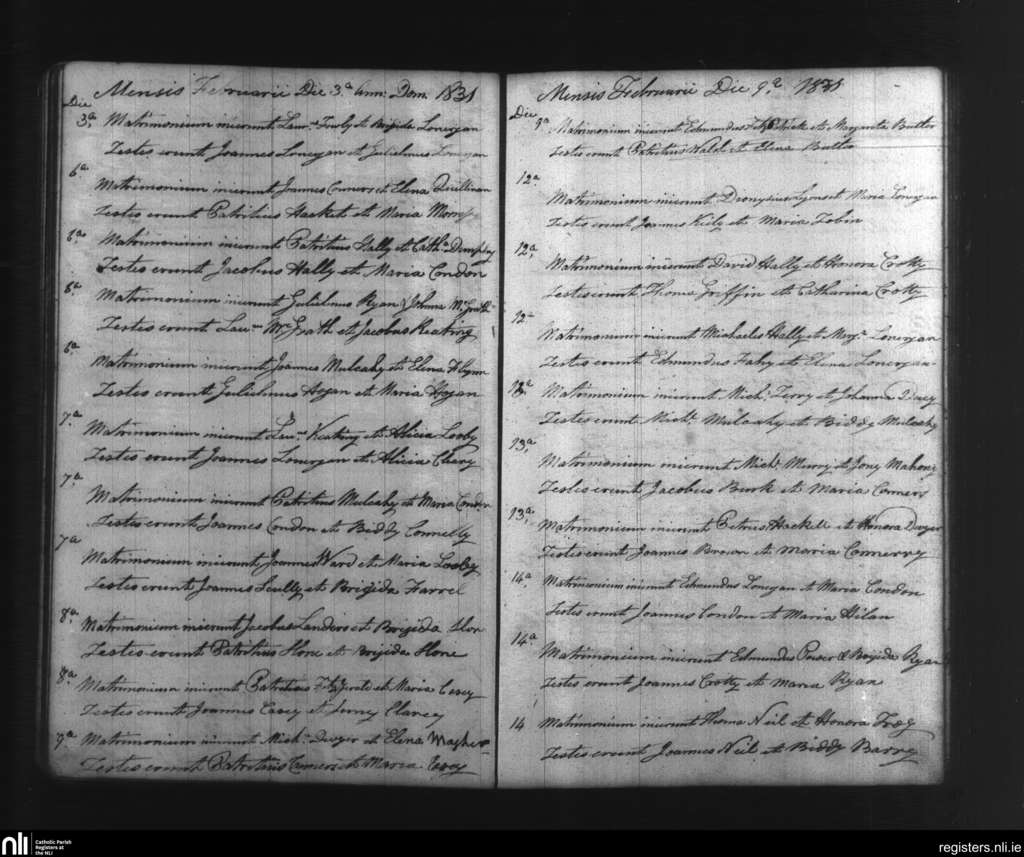 Mensis Februarii Die 3.a Ann: Dom. 1831
Die
3.a Matrimonium inierunt Lau: et Brigida Lonergan
Testes erunt Joannes Lonergan et Gulielmus Lonergan
6a
Matrimonium inierunt Joannes Comers et Elena Quillinan
Testes erunt Patritius Hacket et Maria
6a
Matrimonium inierunt Patritius Hally et Cath.a Dempsy
Testes erunt Jacobus Hally et Maria Condon
6a
Matrimonium inierunt Gulielmus Ryan & Johana McGrath
Testes erunt Lau: McGrath et Jacobus Keating
6a
Matrimonium inierunt Joannes Mulcahy et Elena Flynn
Testes erunt Gulielmus Hogan et Maria Hogan
7a
Matrimonium inierunt Lau: Keating et Alicia Looby
Testes erunt Joannes Lonergan et Alicia Cleary
7.a
Matrimonium inierunt Patritius Mulcahy et Maria Condon
Testes erunt Joannes Condon et Biddy Connelly
7a
Matrimonium inierunt Joannes Ward et Maria Looby
Testes erunt Joannes Scully et Brigida Farrel
8.a
Matrimonium inierunt Jacobus Landers et Brigida Hone
Testes erunt Patritius Hone et Brigida Hone
8a
Matrimonium inierunt Patritius et Maria Casey
Testes erunt Joannes Casey et Clarcy
9a Matrimonium inierunt Mich: Dwyer et Elena Magher
Testes erunt Patritius Comers et Maria Casey
Mensis Februarii Die 9.a 1831
Die
9a Matrimonium inierunt Edmundus FitzPatrick et Margarita Butler
Testes erunt Patritius Walsh et Elena Butler
12a
Matrimonium inierunt Dionysius Lyons et Maria Lonergan
Testes erunt Joannes Kiely et Maria Tobin
12.a
Matrimonium inierunt David Hally et Honora Crotty
Testes erunt Thomas Griffin et Catharina Crotty
12a
Matrimonium inierunt Michael Hally et Mary Lonergan
Testes erunt Edmundus Fahy et Elena Lonergan
13.a Matrimonium inierunt Mich: Terry et Johanna Dacy
Testes erunt Mich: Mulcahy et Biddy Mulcahy
13a
Matrimonium inierunt Mich: Murry et Mahony
Testes erunt Jacobus Burk et Maria Comers
13a
Matrimonium inierunt Petrus Hackett et Honora Dwyer
Testes erunt Joannes Brown et Maria Comerry
14a
Matrimonium inierunt Edmundus Lonergan et Maria Condon
Testes erunt Joannes Condon et Maria Hilan
14a
Matrimonium inierunt Edmundus Power & Brigida Ryan
Testes erunt Joannes Crotty et Maria Ryan
14 Matrimonium inierunt Thoma Neil et Honora
Testes erunt Joannes Neil et Biddy Barry
nli Catholic Parish
Registers at
the NLI
registers.nli.ie